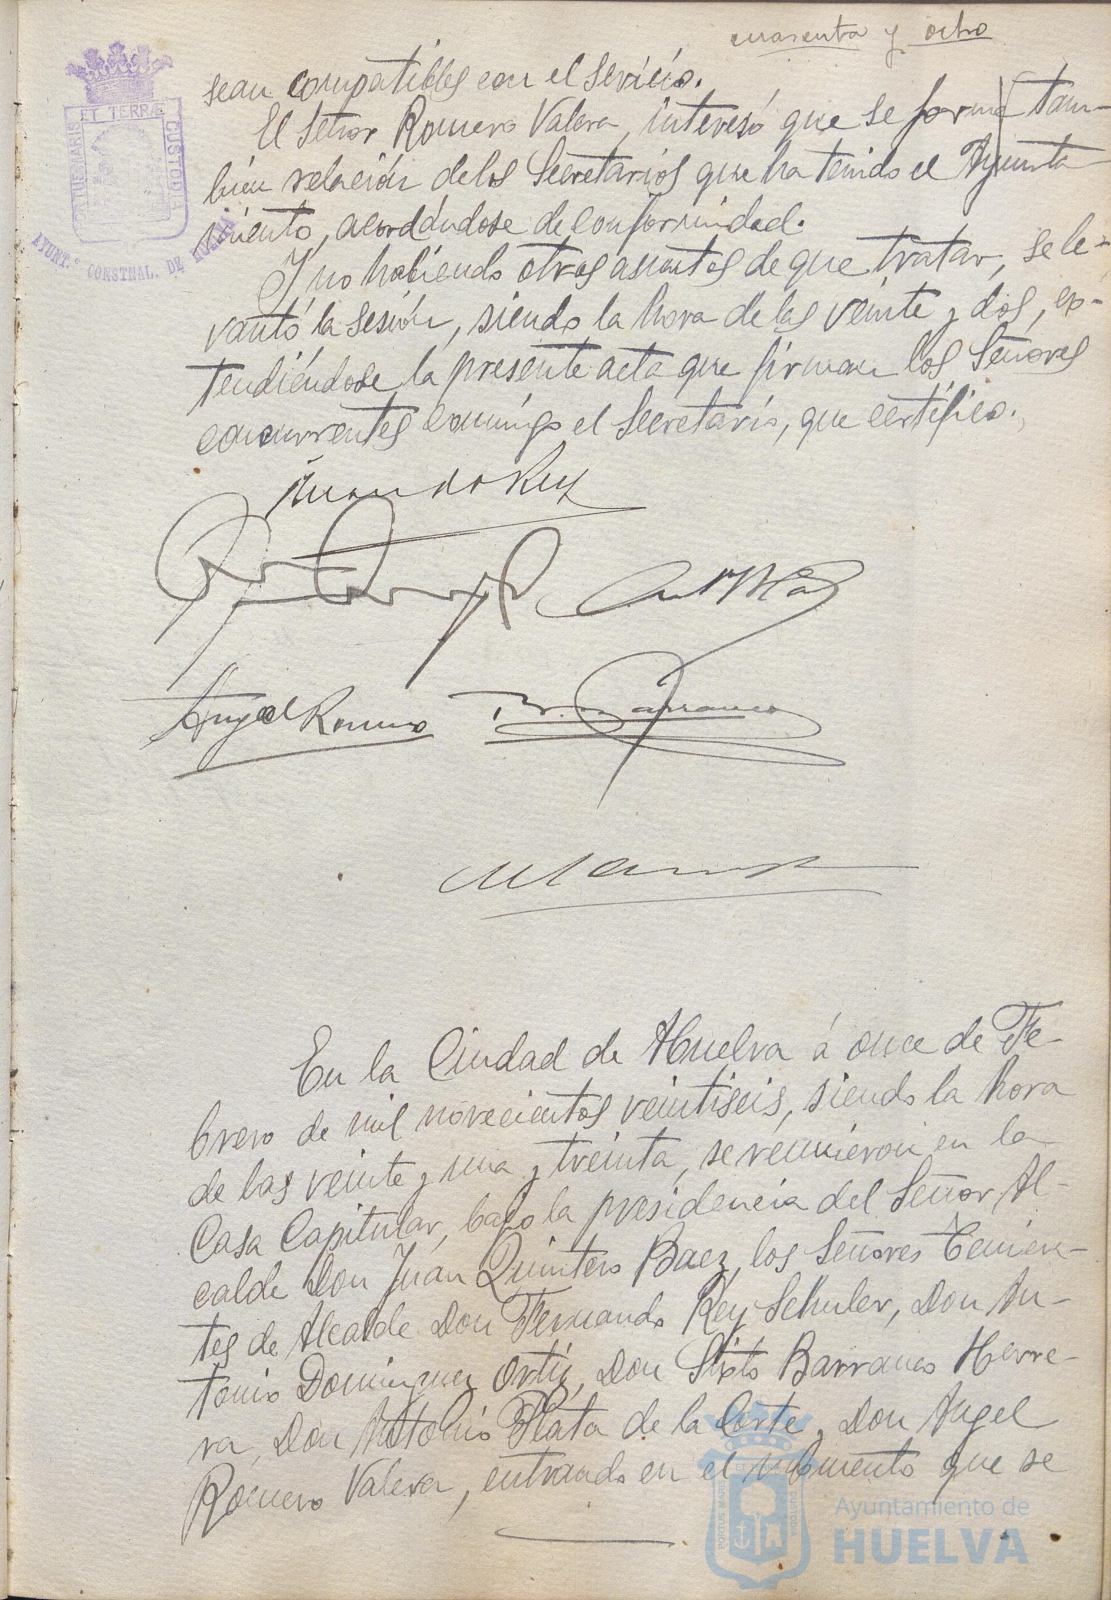 cuarenta y ocho
sean compatibles con el servicio.
El Señor Romero Valera, interesó que se forme tam-
bién relación de los Secretarios que ha tenido el Ayunta
miento, acordándose de conformidad.
Y no habiendo otros asuntos de que tratar, se le-
vantó la sesión, siendo la hora de las veinte y dos, ex-
tendiéndose la presente acta que firman los Señores
concurrentes conmigo el Secretario, que certifico.
PORTUS MARIS ET TERRÆ CUSTODIA
AYUNT.º CONSTNAL. DE HUELVA
Angel Romero
Barranco
En la Ciudad de Huelva á once de Fe-
brero de mil novecientos veintiseis, siendo la hora
de las veinte y una y treinta, se reunieron en la
Casa Capitular, bajo la presidencia del Señor Al-
calde Don Juan Quintero Baez, los Señores Tenien-
tes de Alcalde Don Fernando Rey Schuler, Don An-
tonio Dominguez Ortiz, Don Sixto Barranco Herre-
ra, Don Antonio Plata de la Corte, Don Angel
Romero Valera, entrando en el momento que se
Ayuntamiento de
HUELVA